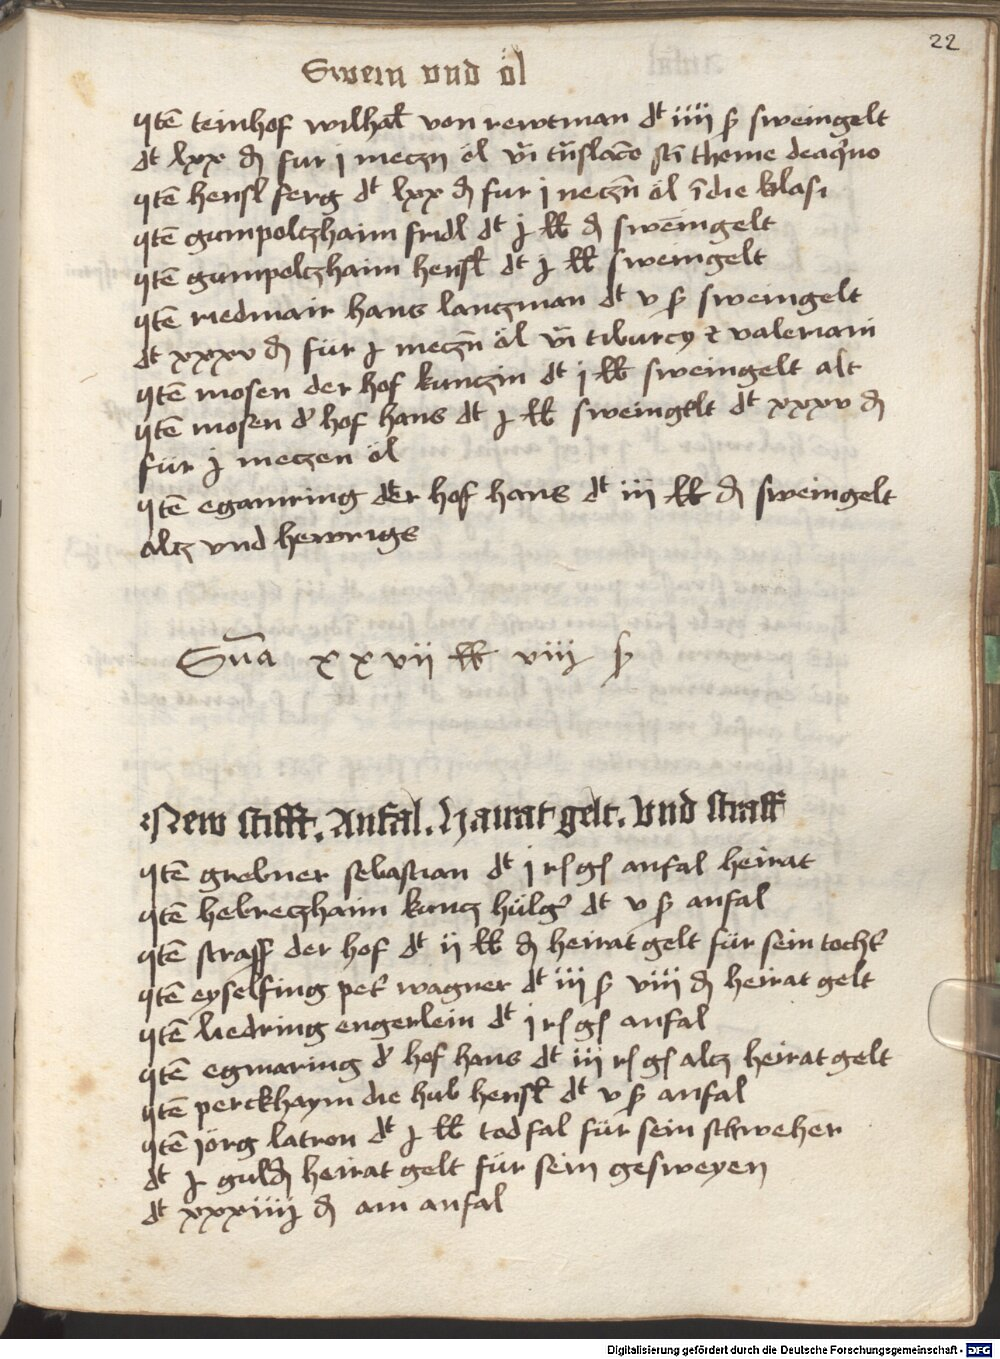 22
Swein vnd öl
ꝗtē teinhof wilhalm von rewtman dt iiij ß sweingelt
dt lxx ₰ fur j meczn öl vñ trāslacōe scī thome de aqͥno
ꝗtē hensl ferg dt lxx ₰ fur j meczn öl ī die blasi
ꝗtē gumpolczhaim fridl dt j lb ₰ swēingelt
ꝗtē gumpolczhaim hensl dt j lb sweingelt
ꝗtē riedmair hans lanczman dt v ß sweingelt
dt xxxv ₰ für j meczn öl vñ tiburcy et valeriani
ꝗtē mosen der hof kunczin dt j lb sweingelt alt
ꝗtē mosen dˀ hof hans dt j lb sweingelt dt xxxv ₰
für j meczen öl
ꝗtē egmaring der hof hans dt iij lb ₰ sweingelt
altz vnd hewrigs
Sūa xxvii lb viii ß
New stifft. Anfal. Hairat gelt. Vnd straff
ꝗtē grebner sebastian dt j rſ gſ anfal heirat
ꝗtē hebreczhaim kuncz hülgˀ dt v ß anfal
ꝗtē strasß der hof dt ij lb ₰ heirat gelt für sein tochtˀ
ꝗtē eyselfing petˀ wagner dt iii ß viii ₰ heirat gelt
ꝗtē liedring engerlein dt j rſ gſ anfal
ꝗtē egmaring dˀ hof hans dt iij rſ gſ altz heirat gelt
ꝗtē perckhaym die hub hensl dt v ß anfal
ꝗtē jörg latron dt j lb todfal für sein schweher
dt j guld heirat gelt für sein gesweyen
dt xxxiiij ₰ am anfal
Digitalisierung gefördert durch die Deutsche Forschungsgemeinschaft - DFG